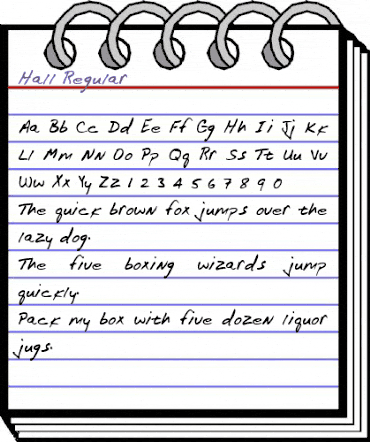 Hall Regular
Aa Bb Cc Dd Ee Ff Gg Hh Ii Jj Kk
Ll Mm Nn Oo Pp Qq Rr Ss Tt Uu Vv
Ww Xx Yy Zz 1 2 3 4 5 6 7 8 9 0
The quick brown fox jumps over the
lazy dog.
The five boxing wizards jump
quickly.
Pack my box with five dozen liquor
jugs.